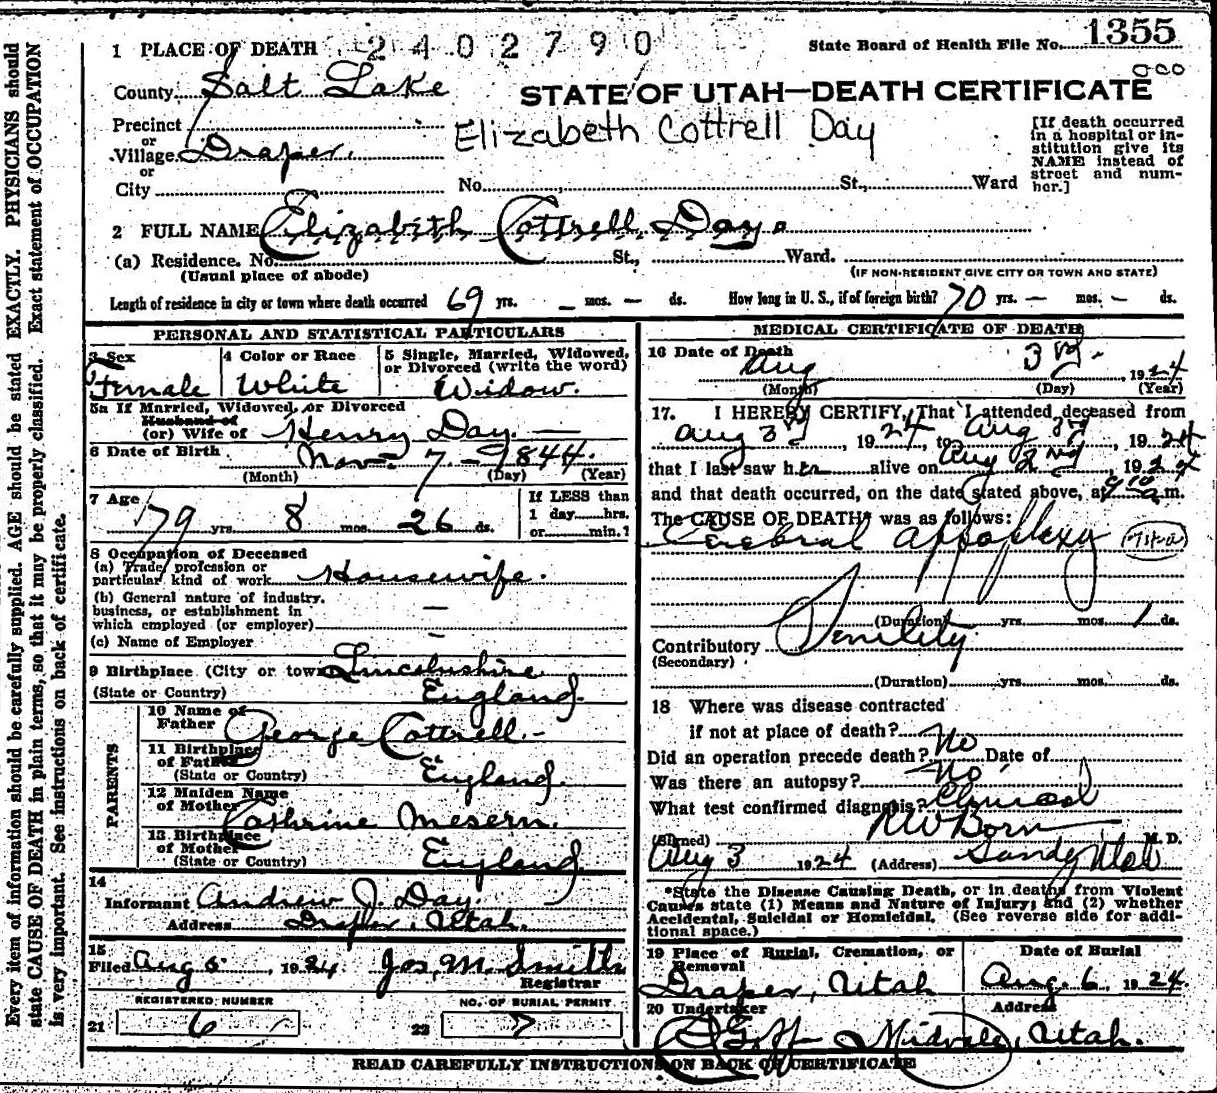 1 PLACE OF DEATH 2402790
State Board of Health File No. 1355
County Salt Lake
STATE OF UTAH—DEATH CERTIFICATE
Precinct
or
Village Draper.
or
City No. St., Ward
Elizabeth Cottrell Day
[If death occurred
in a hospital or in-
stitution give its
NAME instead of
street and num-
ber.]
2 FULL NAME Elizabeth Cottrell Day.
(a) Residence. No. St., Ward.
(Usual place of abode)
(IF NON-RESIDENT GIVE CITY OR TOWN AND STATE)
Length of residence in city or town where death occurred 69 yrs. — mos. — ds. How long in U. S., if of foreign birth? 70 yrs. — mos. — ds.
PERSONAL AND STATISTICAL PARTICULARS
3 Sex
Female
4 Color or Race
White
5 Single, Married, Widowed,
or Divorced (write the word)
Widow.
5a If Married, Widowed, or Divorced
Husband of
(or) Wife of Henry Day. —
6 Date of Birth Nov. 7 - 1844.
(Month) (Day) (Year)
7 Age
79 yrs. 8 mos. 26 ds.
If LESS than
1 day hrs.
or min.?
8 Occupation of Deceased
(a) Trade, profession or
particular kind of work Housewife.
(b) General nature of industry,
business, or establishment in
which employed (or employer) —
(c) Name of Employer —
9 Birthplace (City or town) Lincolnshire
(State or Country) England.
PARENTS
10 Name of
Father George Cottrell.-
11 Birthplace
of Father
(State or Country) England.
12 Maiden Name
of Mother Cathrine Mesern.
13 Birthplace
of Mother
(State or Country) England.
14
Informant Andrew J. Day.
Address Draper, Utah.
15
Filed Aug 5, 1924 Jos. M. Smith
Registrar
REGISTERED NUMBER
21 6
NO. OF BURIAL PERMIT
22 7
MEDICAL CERTIFICATE OF DEATH
16 Date of Death
Aug 3rd. 1924
(Month) (Day) (Year)
17. I HEREBY CERTIFY, That I attended deceased from
Aug 3rd, 1924, to Aug 3rd, 1924
that I last saw her alive on Aug 2nd, 1924
and that death occurred, on the date stated above, at a.m.
The CAUSE OF DEATH* was as follows:
Cerebral Appoplexy
(Duration) yrs. mos. 1 ds.
Contributory Senility.
(Secondary)
(Duration) yrs. mos. ds.
18 Where was disease contracted
if not at place of death?
Did an operation precede death? No Date of
Was there an autopsy? No
What test confirmed diagnosis? Clinical
(Signed) RW Born M. D.
Aug 3 1924 (Address) Sandy Utah
*State the Disease Causing Death, or in deaths from Violent
Causes state (1) Means and Nature of Injury; and (2) whether
Accidental, Suicidal or Homicidal. (See reverse side for addi-
tional space.)
19 Place of Burial, Cremation, or
Removal
Draper, Utah
Date of Burial
Aug. 6, 1924
20 Undertaker
Goff
Address
Midvale, Utah.
READ CAREFULLY INSTRUCTIONS ON BACK OF CERTIFICATE
Every item of information should be carefully supplied. AGE should be stated EXACTLY. PHYSICIANS should
state CAUSE OF DEATH in plain terms, so that it may be properly classified. Exact statement of OCCUPATION
is very important. See instructions on back of certificate.